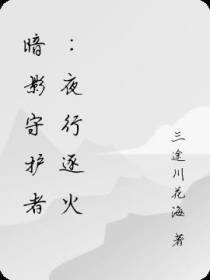 暗影守护者
：夜行逐火
三途川花海 著